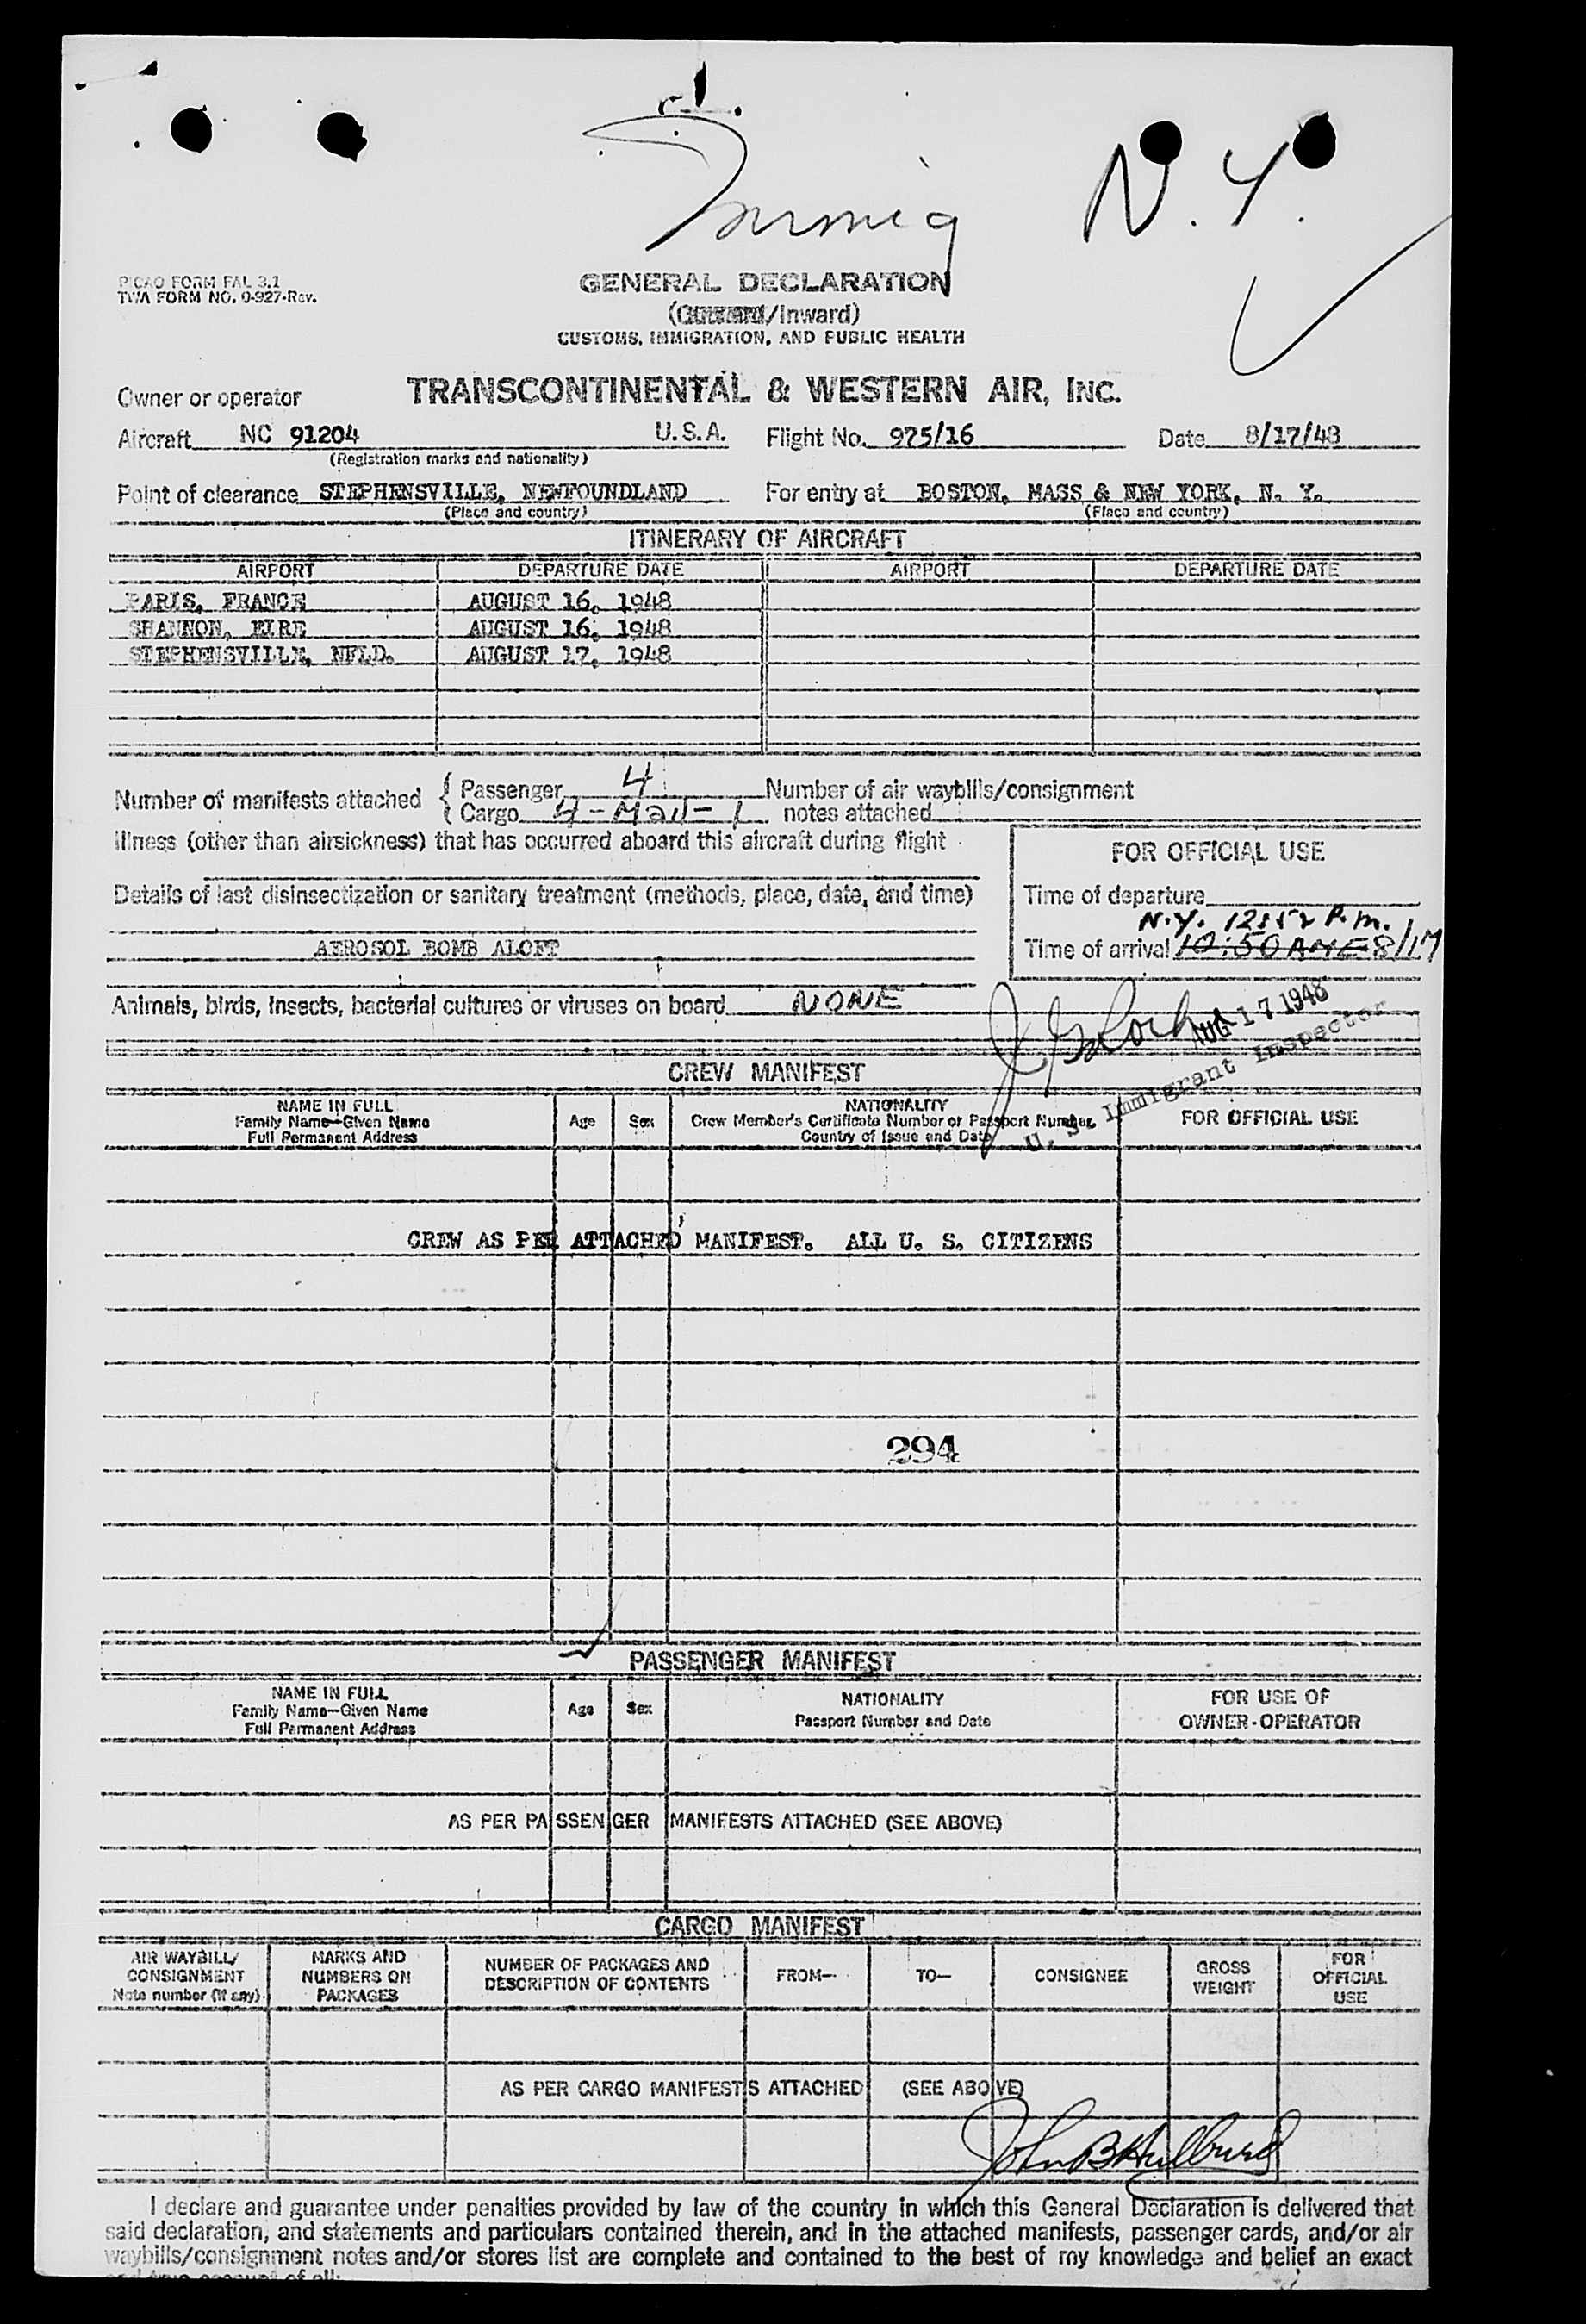 Immig N.Y.
PICAO FORM FAL 3.1
TWA FORM NO. 0-927-Rev.
GENERAL DECLARATION
(Outward/Inward)
CUSTOMS, IMMIGRATION, AND PUBLIC HEALTH
Owner or operator TRANSCONTINENTAL & WESTERN AIR, INC.
Aircraft NC 91204 U.S.A. Flight No. 975/16 Date 8/17/48
(Registration marks and nationality)
Point of clearance STEPHENSVILLE, NEWFOUNDLAND For entry at BOSTON, MASS & NEW YORK, N. Y.
(Place and country) (Place and country)
ITINERARY OF AIRCRAFT
AIRPORT DEPARTURE DATE AIRPORT DEPARTURE DATE
PARIS, FRANCE AUGUST 16, 1948
SHANNON, EIRE AUGUST 16, 1948
STEPHENSVILLE, NFLD. AUGUST 17, 1948
Number of manifests attached { Passenger 4 Number of air waybills/consignment
Cargo 4-Mail-1 notes attached
Illness (other than airsickness) that has occurred aboard this aircraft during flight
FOR OFFICIAL USE
Details of last disinsectization or sanitary treatment (methods, place, date, and time)
Time of departure
N.Y. 12:52 P.m.
AEROSOL BOMB ALOFT
Time of arrival 10:50 AME 8/17
Animals, birds, insects, bacterial cultures or viruses on board NONE
AUG 17 1948
U. S. Immigrant Inspector
CREW MANIFEST
NAME IN FULL
Family Name—Given Name
Full Permanent Address
Age
Sex
NATIONALITY
Crew Member's Certificate Number or Passport Number
Country of Issue and Date
FOR OFFICIAL USE
CREW AS PER ATTACHED MANIFEST. ALL U. S. CITIZENS
294
PASSENGER MANIFEST
NAME IN FULL
Family Name—Given Name
Full Permanent Address
Age
Sex
NATIONALITY
Passport Number and Date
FOR USE OF
OWNER-OPERATOR
AS PER PASSENGER MANIFESTS ATTACHED (SEE ABOVE)
CARGO MANIFEST
AIR WAYBILL/
CONSIGNMENT
Note number (if any)
MARKS AND
NUMBERS ON
PACKAGES
NUMBER OF PACKAGES AND
DESCRIPTION OF CONTENTS
FROM—
TO—
CONSIGNEE
GROSS
WEIGHT
FOR
OFFICIAL
USE
AS PER CARGO MANIFESTS ATTACHED (SEE ABOVE)
John B Hulburd
I declare and guarantee under penalties provided by law of the country in which this General Declaration is delivered that
said declaration, and statements and particulars contained therein, and in the attached manifests, passenger cards, and/or air
waybills/consignment notes and/or stores list are complete and contained to the best of my knowledge and belief an exact
and true account of all: